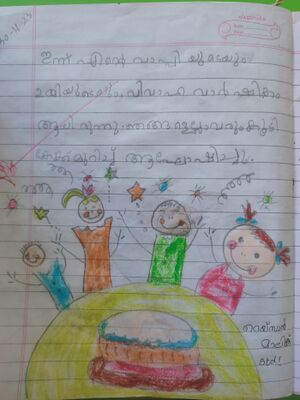 30.11.23
ഇന്ന് എന്റെ വാപ്പി യുടെയും
ഉമ്മിയുടെയും, വിവാഹ വാർഷികം
ആയി രുന്നു. ഞങ്ങളെല്ലാവരുംകൂടി
കേക്ക്മുറിച്ച് ആഘോഷിച്ചു.